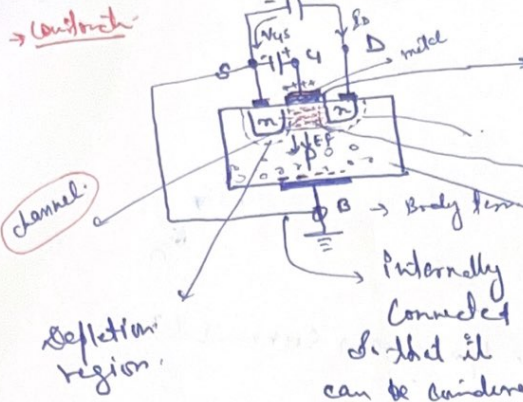 → Construct
VGS
ID
S
G
D
metal
n
n
EF
channel.
B → Body
internally
connected
So that it
can be
depletion
region.